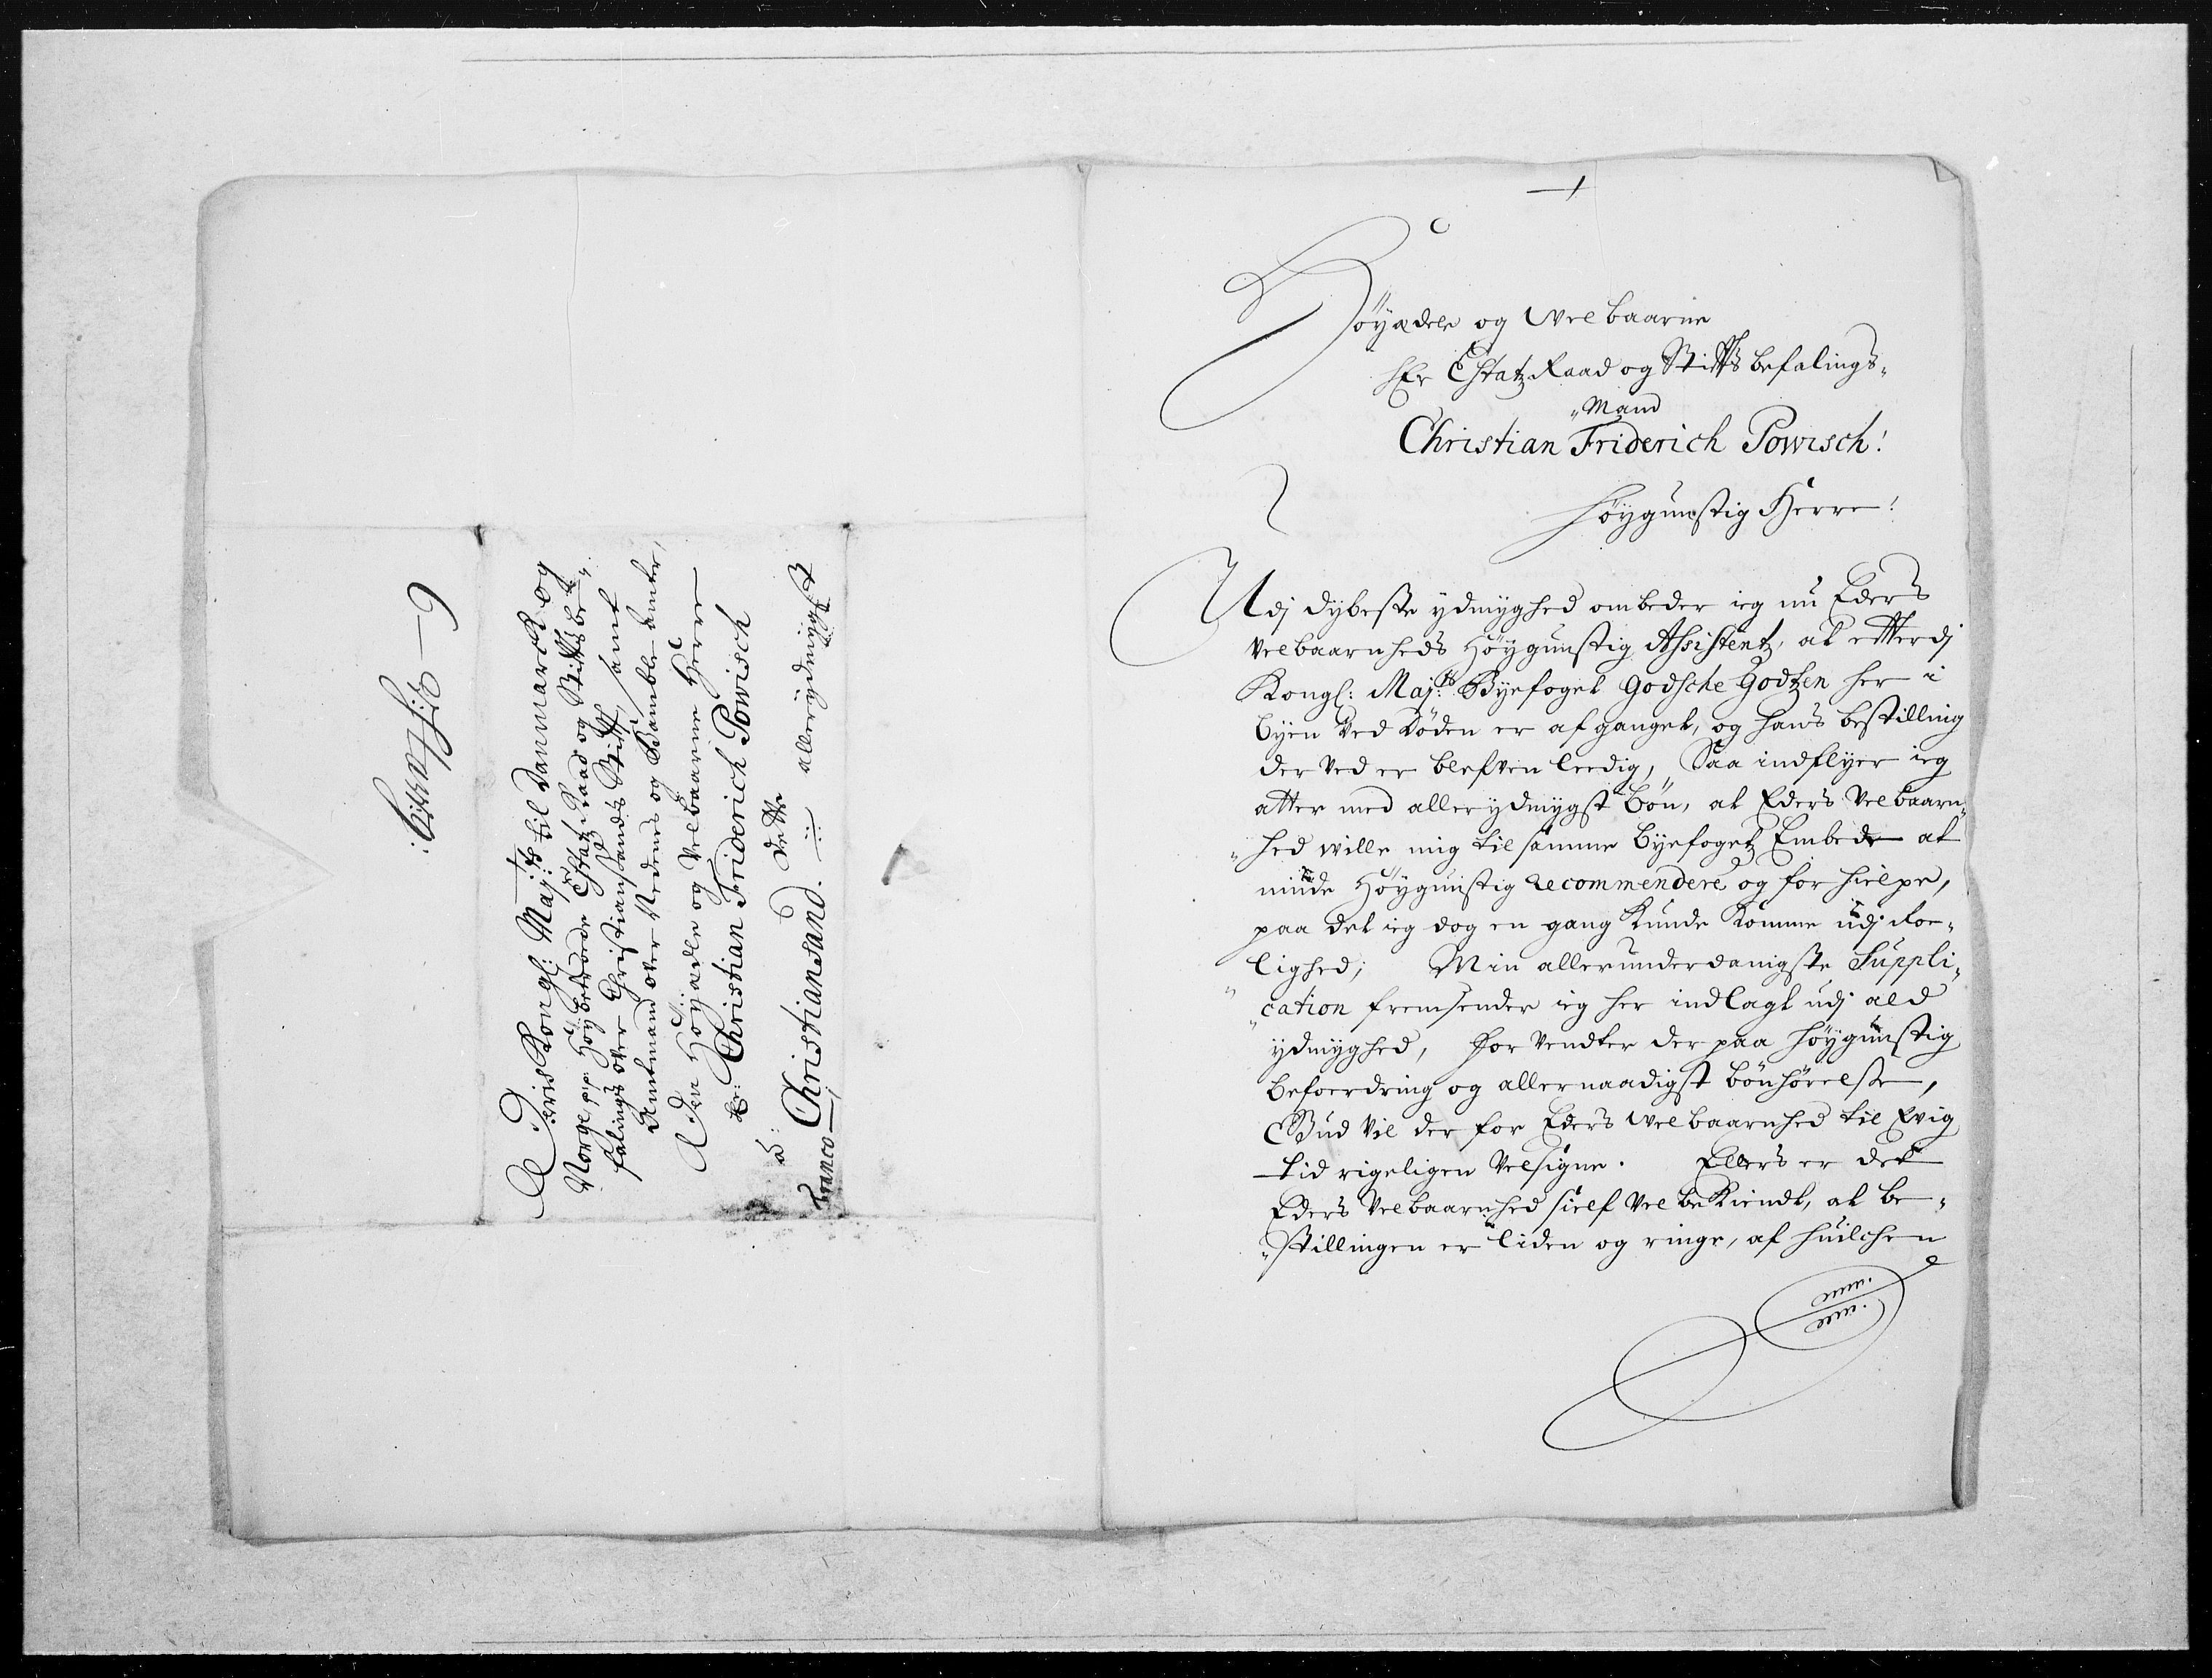 Deris Kongl: Maj:ts til Danmarck og
Norge pp: Høybetroede Estatz Raad og Stiftsbe¬
falings over Christiansands Stift, samt
Amtmand over Nedenes og Bamble Amter,
Den Höyædle og Velbaarne Herre
Hr: Christian Friderich Powisch
a: dette
Christiansand. allerydmygst
Franco

Höyædele og Welbaarne
HEr Estatz Raad og Stifts befalings¬
Mand
Christian Friderich Powisch!
Høygunstig Herre!
Udj dybeste ydmyghed ombeder ieg nu Eders
velbaarnheds Høygunstig Assistentz, at efterdj
Kongl: Maj:ts Byefoget Godsche Godtzen her i
byen ved døden er afganget, og hans bestilling
der ved er blefven leedig, Saa indflyer ieg
atter med allerydmygst bøn, at Eders Velbaarn¬
hed wille mig til samme byefogetz Embede at
minde Høygunstig recommendere og forhielpe,
paa det ieg dog en gang kunde komme udj Roe¬
lighed; Min allerunderdanigste Suppli¬
cation fremsender ieg her indlagt udj ald
ydmyghed, forvendter der paa høygunstig
befoerdring og allernaadigst bønhørelse,
Gud vil der for Eders Welbaarnhed til Evig
tid rigeligen velsigne. Ellers er det
Eders Velbaarnhed sielf vel bekiendt, at be¬
stillingen er liden og ringe, af huilchen